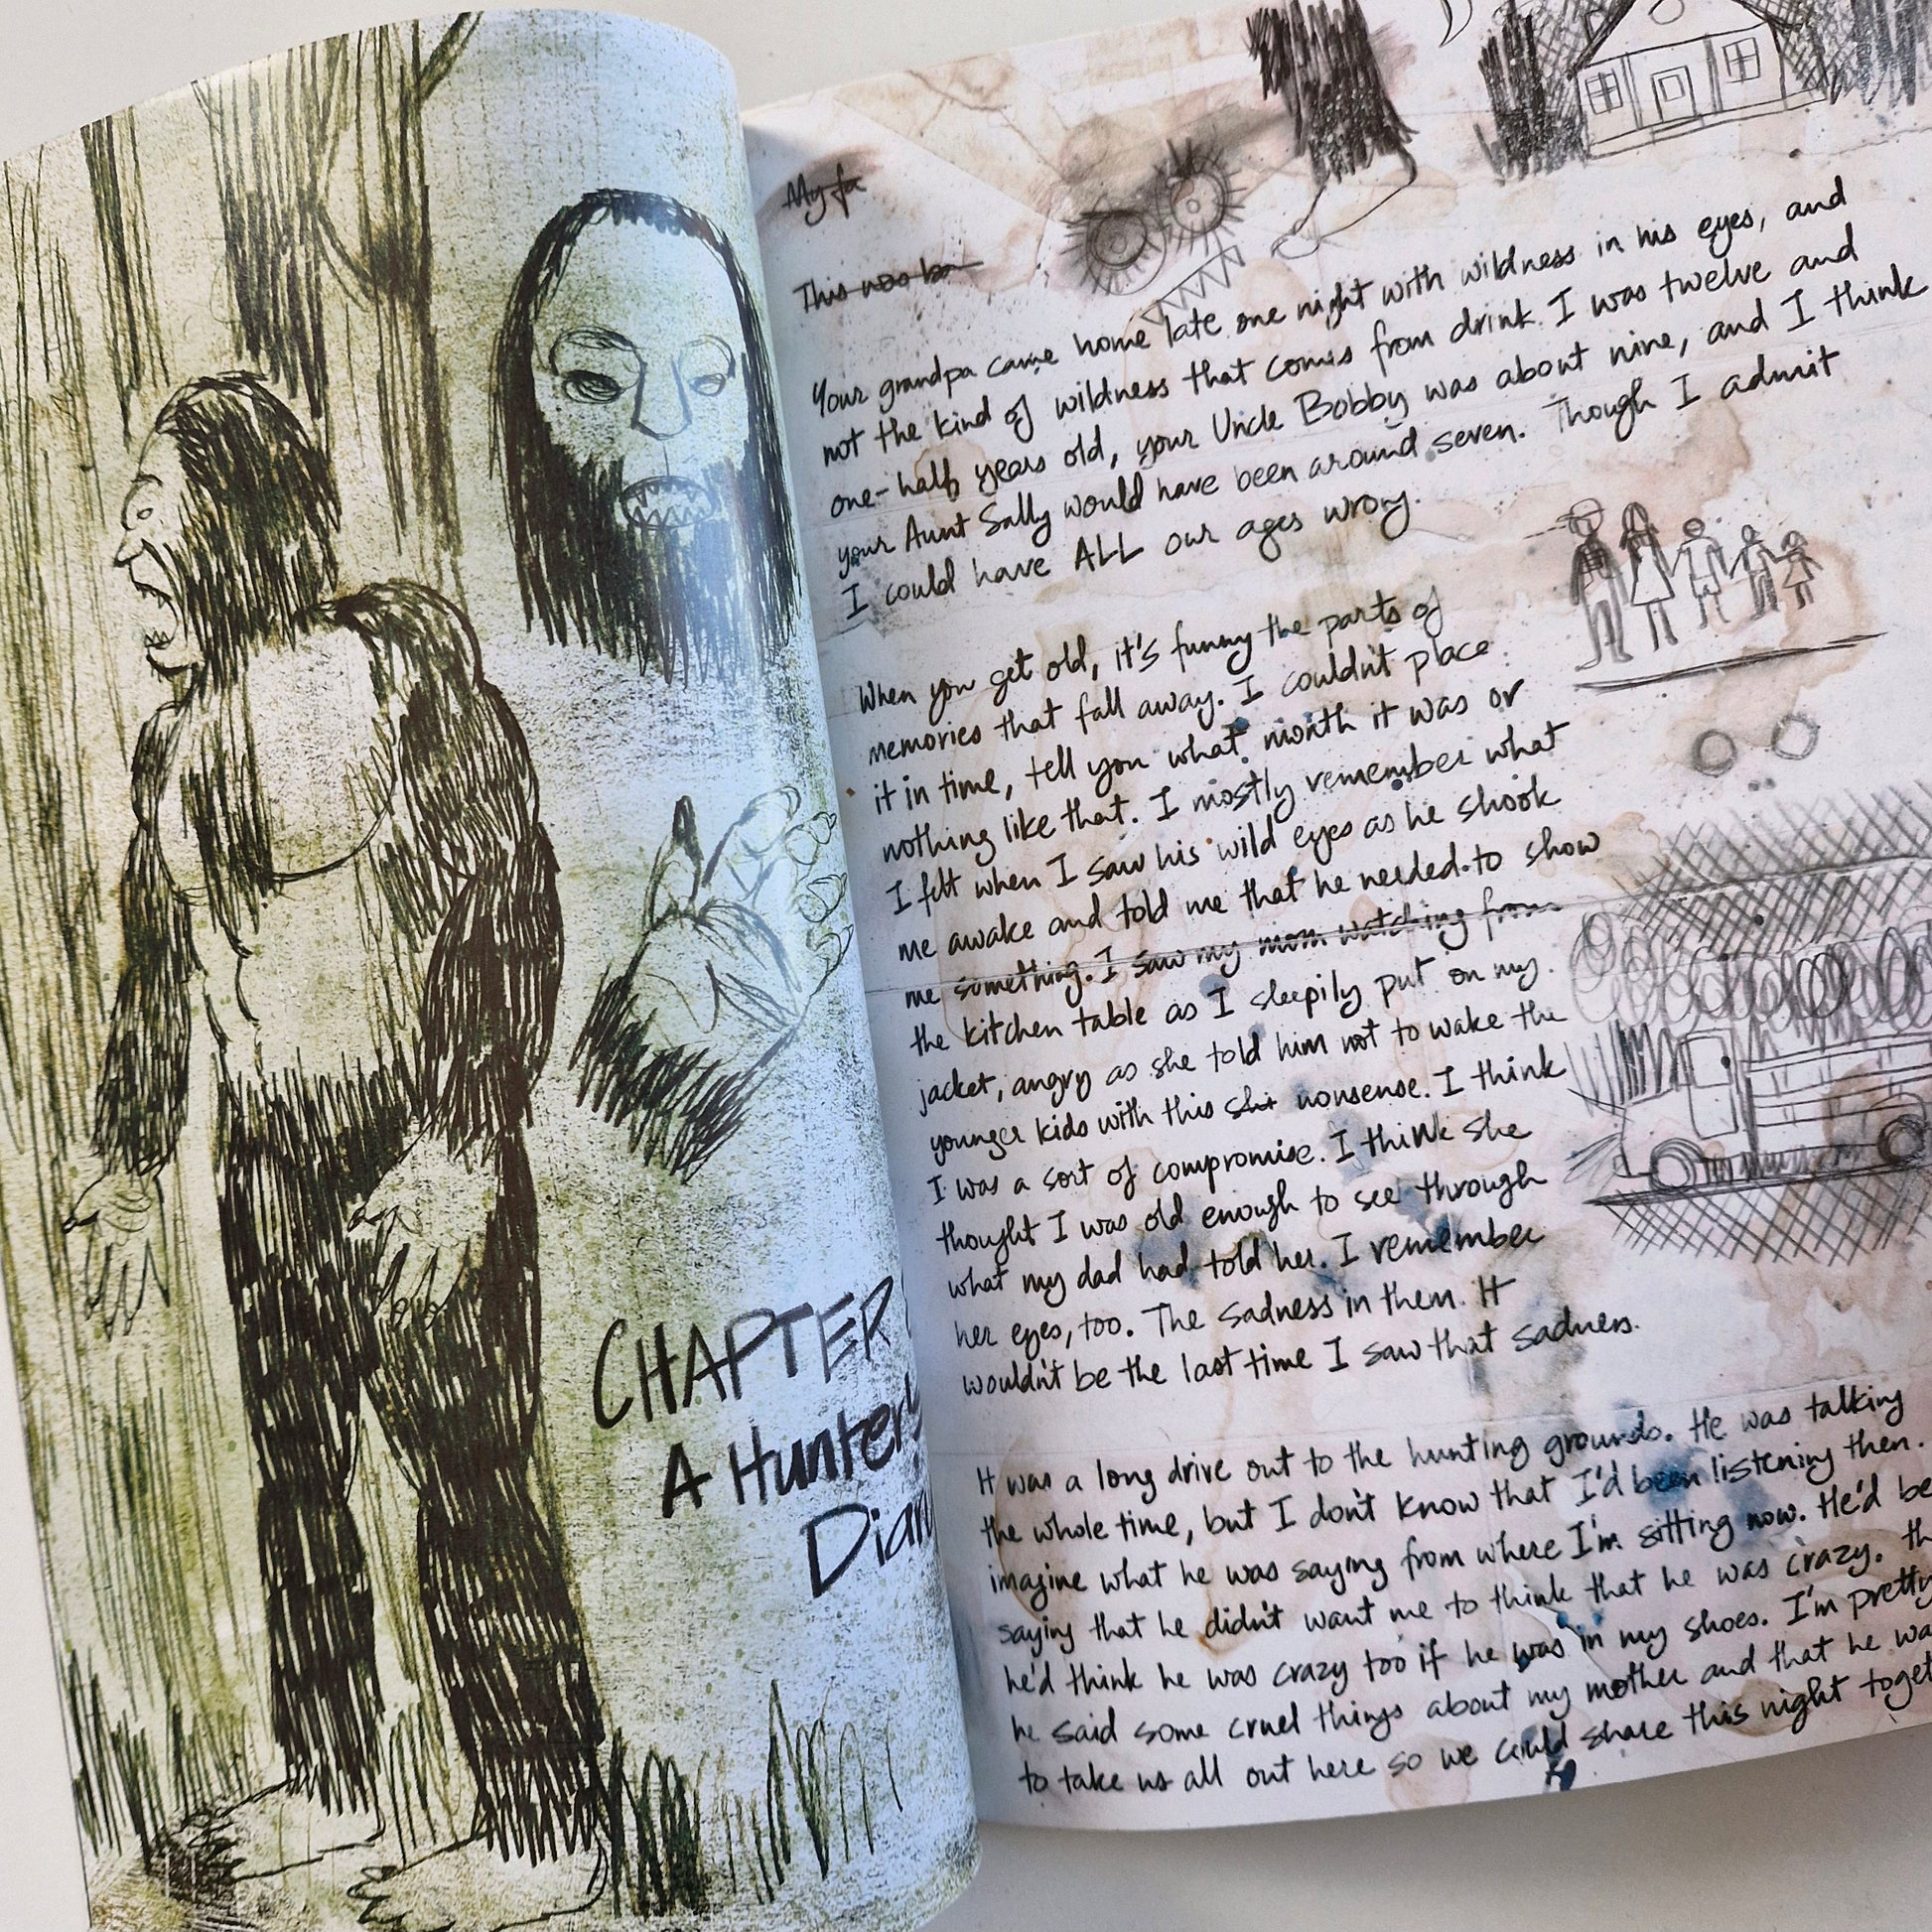 CHAPTER
A Hunter's
Diar
My fa
This was
Your grandpa came home late one night with wildness in his eyes, and
not the kind of wildness that comes from drink. I was twelve and
one-half years old, your Uncle Bobby was about nine, and I think
your Aunt Sally would have been around seven. Though I admit
I could have ALL our ages wrong.
When you get old, it's funny the parts of
memories that fall away. I couldn't place
it in time, tell you what month it was or
nothing like that. I mostly remember what
I felt when I saw his wild eyes as he shook
me awake and told me that he needed to show
me something. I saw my mom watching from
the kitchen table as I sleepily put on my
jacket, angry as she told him not to wake the
younger kids with this shit nonsense. I think
I was a sort of compromise. I think she
thought I was old enough to see through
what my dad had told her. I remember
her eyes, too. The sadness in them. It
wouldn't be the last time I saw that sadness.
It was a long drive out to the hunting grounds. He was talking
the whole time, but I don't know that I'd been listening then.
imagine what he was saying from where I'm sitting now. He'd be
saying that he didn't want me to think that he was crazy. Th
he'd think he was crazy too if he was in my shoes. I'm pretty
he said some cruel things about my mother and that he wa
to take us all out here so we could share this night toget